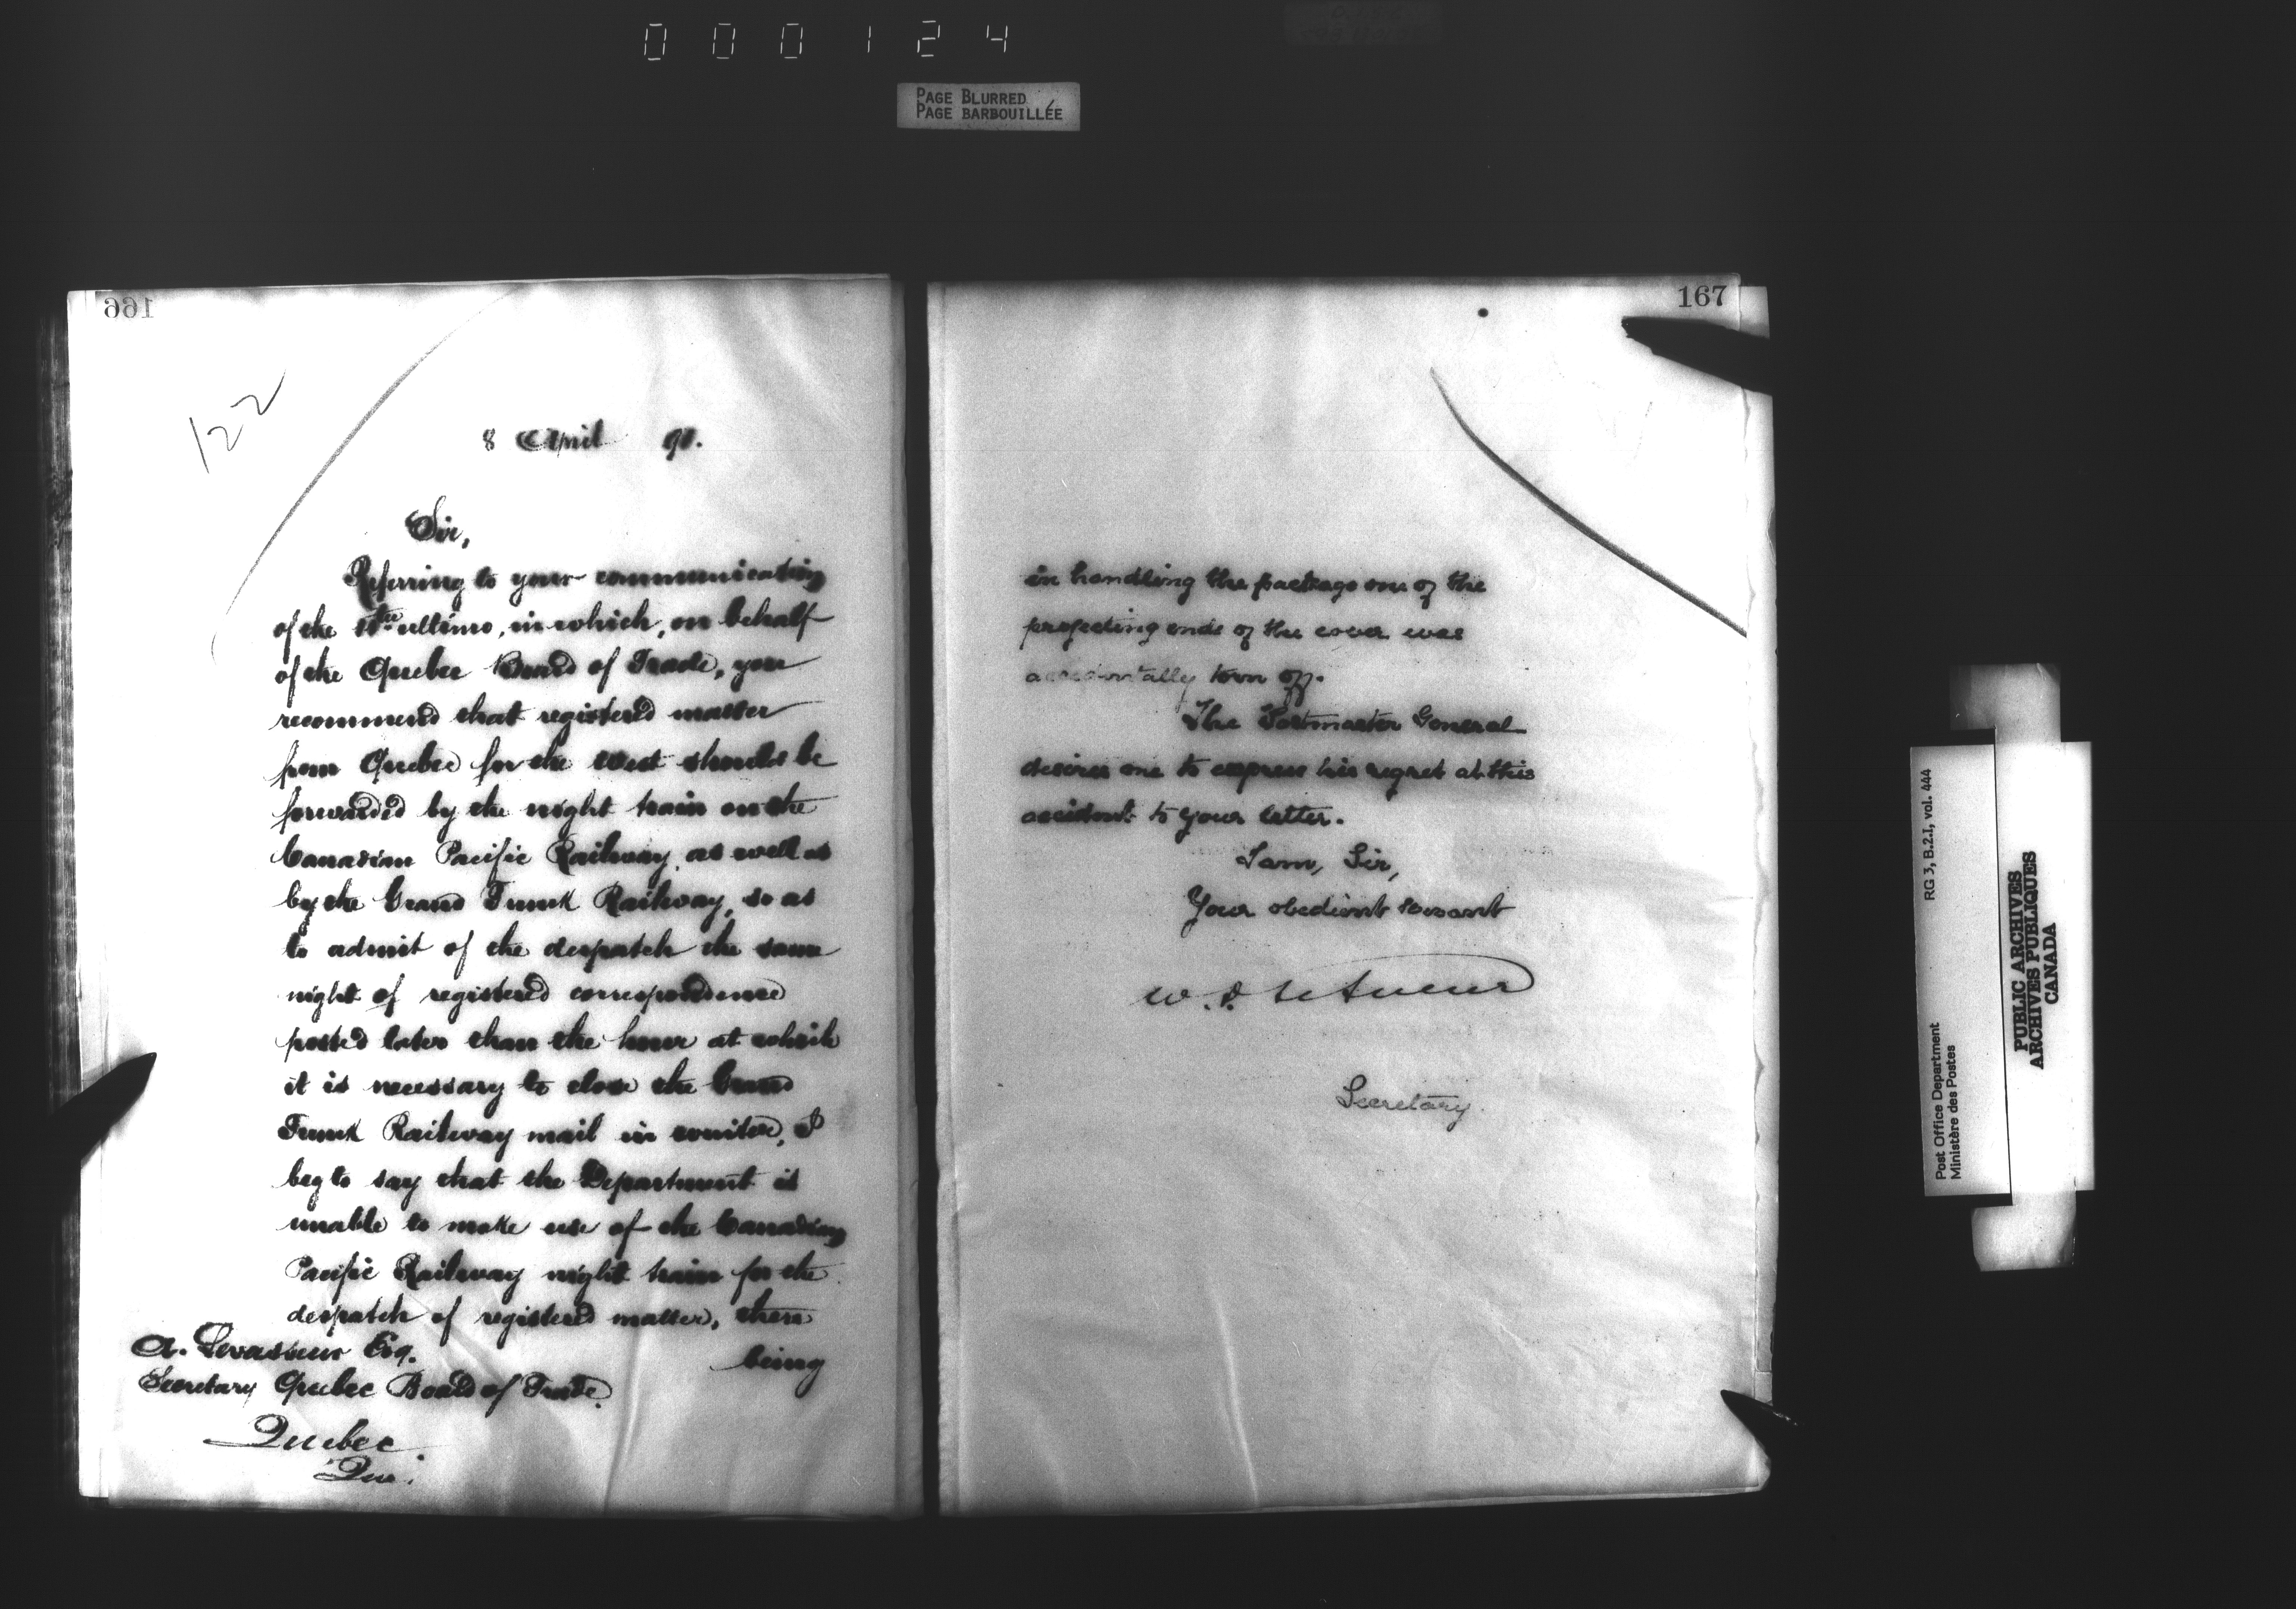 000124
PAGE BLURRED
PAGE BARBOUILLÉE
166
122
8 April 90.
Sir,
Referring to your communication
of the ultimo, in which, on behalf
of the Quebec Board of Trade, you
recommend that registered matter
from Quebec for the West should be
forwarded by the night train on the
Canadian Pacific Railway, as well as
by the Grand Trunk Railway, so as
to admit of the despatch the same
night of registered correspondence
posted later than the hour at which
it is necessary to close the Grand
Trunk Railway mail in winter, I
beg to say that the Department is
unable to make use of the Canadian
Pacific Railway night train for the
despatch of registered matter, there
being
A. Levasseur Esq.
Secretary Quebec Board of Trade.
Quebec.
Que.
167
in handling the package one of the
projecting ends of the cover was
accidentally torn off.
The Postmaster General
desires me to express his regret at this
accident to your letter.
I am, Sir,
Your obedient servant
W. D. LeSueur
Secretary.
Post Office Department
Ministère des Postes
RG 3, B.2.I, vol. 444
PUBLIC ARCHIVES
ARCHIVES PUBLIQUES
CANADA